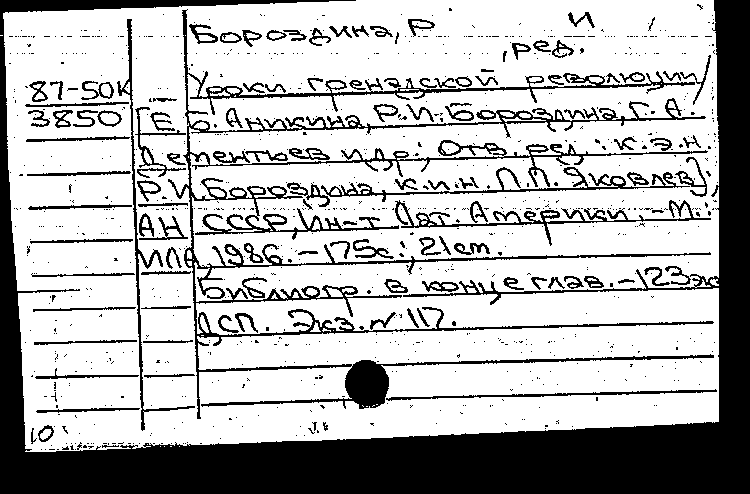 Бороздина, Р И
, ред.
87-50к Уроки гренадской революции /
3850 [Е. Б. Аникина, Р.И. Бороздина, Г. А.
Дементьев и др.; Отв. ред.: к.э.н
Р.И. Бороздина, к.и.н. П.П. Яковлев];
АН СССР, Ин-т Лат. Америки. - М.:
ИЛА, 1986. - 175с.; 21 cm.
Библиогр. в конце глав. - 123 экз
ДСП. Экз. № 117.
10